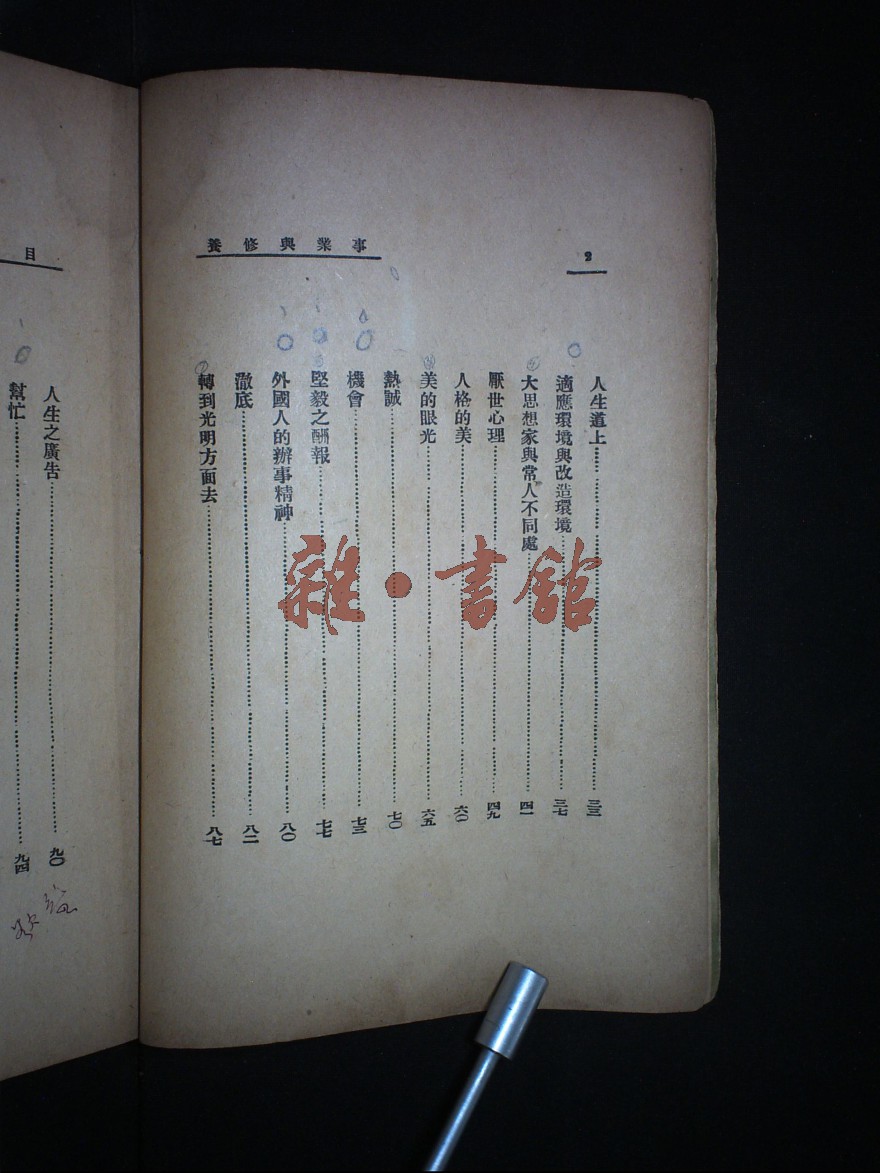 事業與修養
2
人生道上……三三
適應環境與改造環境……三七
大思想家與常人不同處……四一
厭世心理……四九
人格的美……六〇
美的眼光……六五
熱誠……七〇
機會……七三
堅毅之酬報……七七
外國人的辦事精神……八〇
澈底……八二
轉到光明方面去……八七
目
人生之廣告……九〇
幫忙……九四
雜·書館